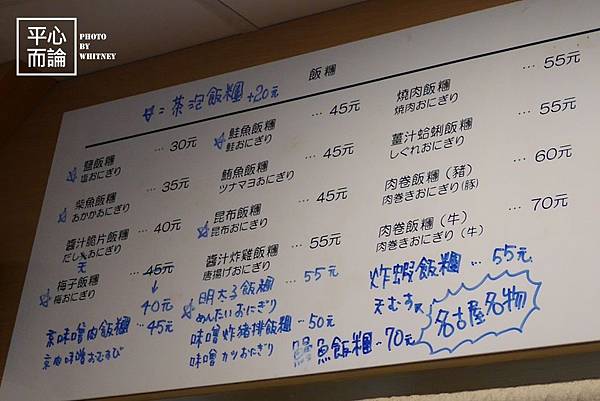 平心
而論
PHOTO
BY
WHITNEY
飯糰
☆=茶泡飯糰 +20元
☆ 鹽飯糰 … 30元
塩おにぎり
☆ 柴魚飯糰 … 35元
おかかおにぎり
醬汁脆片飯糰 … 40元
だし天おにぎり
天
☆ 梅子飯糰 … 45元
梅おにぎり
↓
40元
京味噌肉飯糰 … 45元
京肉味噌おむすび
☆ 鮭魚飯糰 … 45元
鮭おにぎり
鮪魚飯糰 … 45元
ツナマヨおにぎり
☆ 昆布飯糰 … 45元
昆布おにぎり
醬汁炸雞飯糰 … 55元
唐揚げおにぎり
☆ 明太子飯糰 … 55元
めんたいおにぎり
味噌炸豬排飯糰 … 50元
味噌カツおにぎり
燒肉飯糰 … 55元
焼肉おにぎり
薑汁蛤蜊飯糰 … 55元
しぐれおにぎり
肉卷飯糰（豬） … 60元
肉巻きおにぎり（豚）
肉卷飯糰（牛） … 70元
肉巻きおにぎり（牛）
炸蝦飯糰 … 55元
天むす
名古屋名物
鰻魚飯糰 … 70元